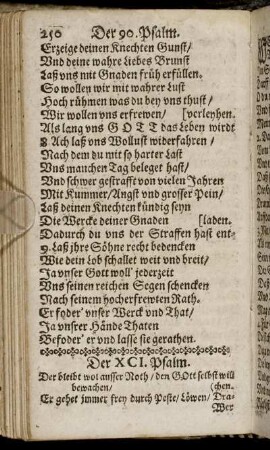 250 Der 90. Psalm.
Erzeige deinen Knechten Gunst/
Vnd deine wahre Liebes Brunst
Laß vns mit Gnaden früh erfüllen.
So wollen wir mit wahrer Lust
Hoch rühmen was du bey vns thust/
Wir wollen vns erfrewen/ [verleyhen.
Als lang vns GOTT das Leben wirdt
8 Ach laß vns Wollust widerfahren/
Nach dem du mit so harter Last
Vns manchen Tag beleget hast/
Vnd schwer gestrafft von vielen Jahren
Mit Kummer/Angst vnd grosser Pein/
Laß deinen Knechten kündig seyn
Die Wercke deiner Gnaden [laden.
Dadurch du vns der Straffen hast ent-
9. Laß jhre Söhne recht bedencken
Wie dein Lob schallet weit vnd breit/
Ja vnser Gott woll' jederzeit
Vns seinen reichen Segen schencken
Nach seinem hocherfrewten Rath.
Er foder' vnser Werck vnd That/
Ja vnsrer Hände Thaten
Befoder' er vnd lasse sie gerathen.
Der XCI. Psalm.
Der bleibt wol ausser Noth/ den GOtt selbst will
bewachen/ (chen.
Er gehet immer frey durch Peste/ Löwen/ Dra-
Wer